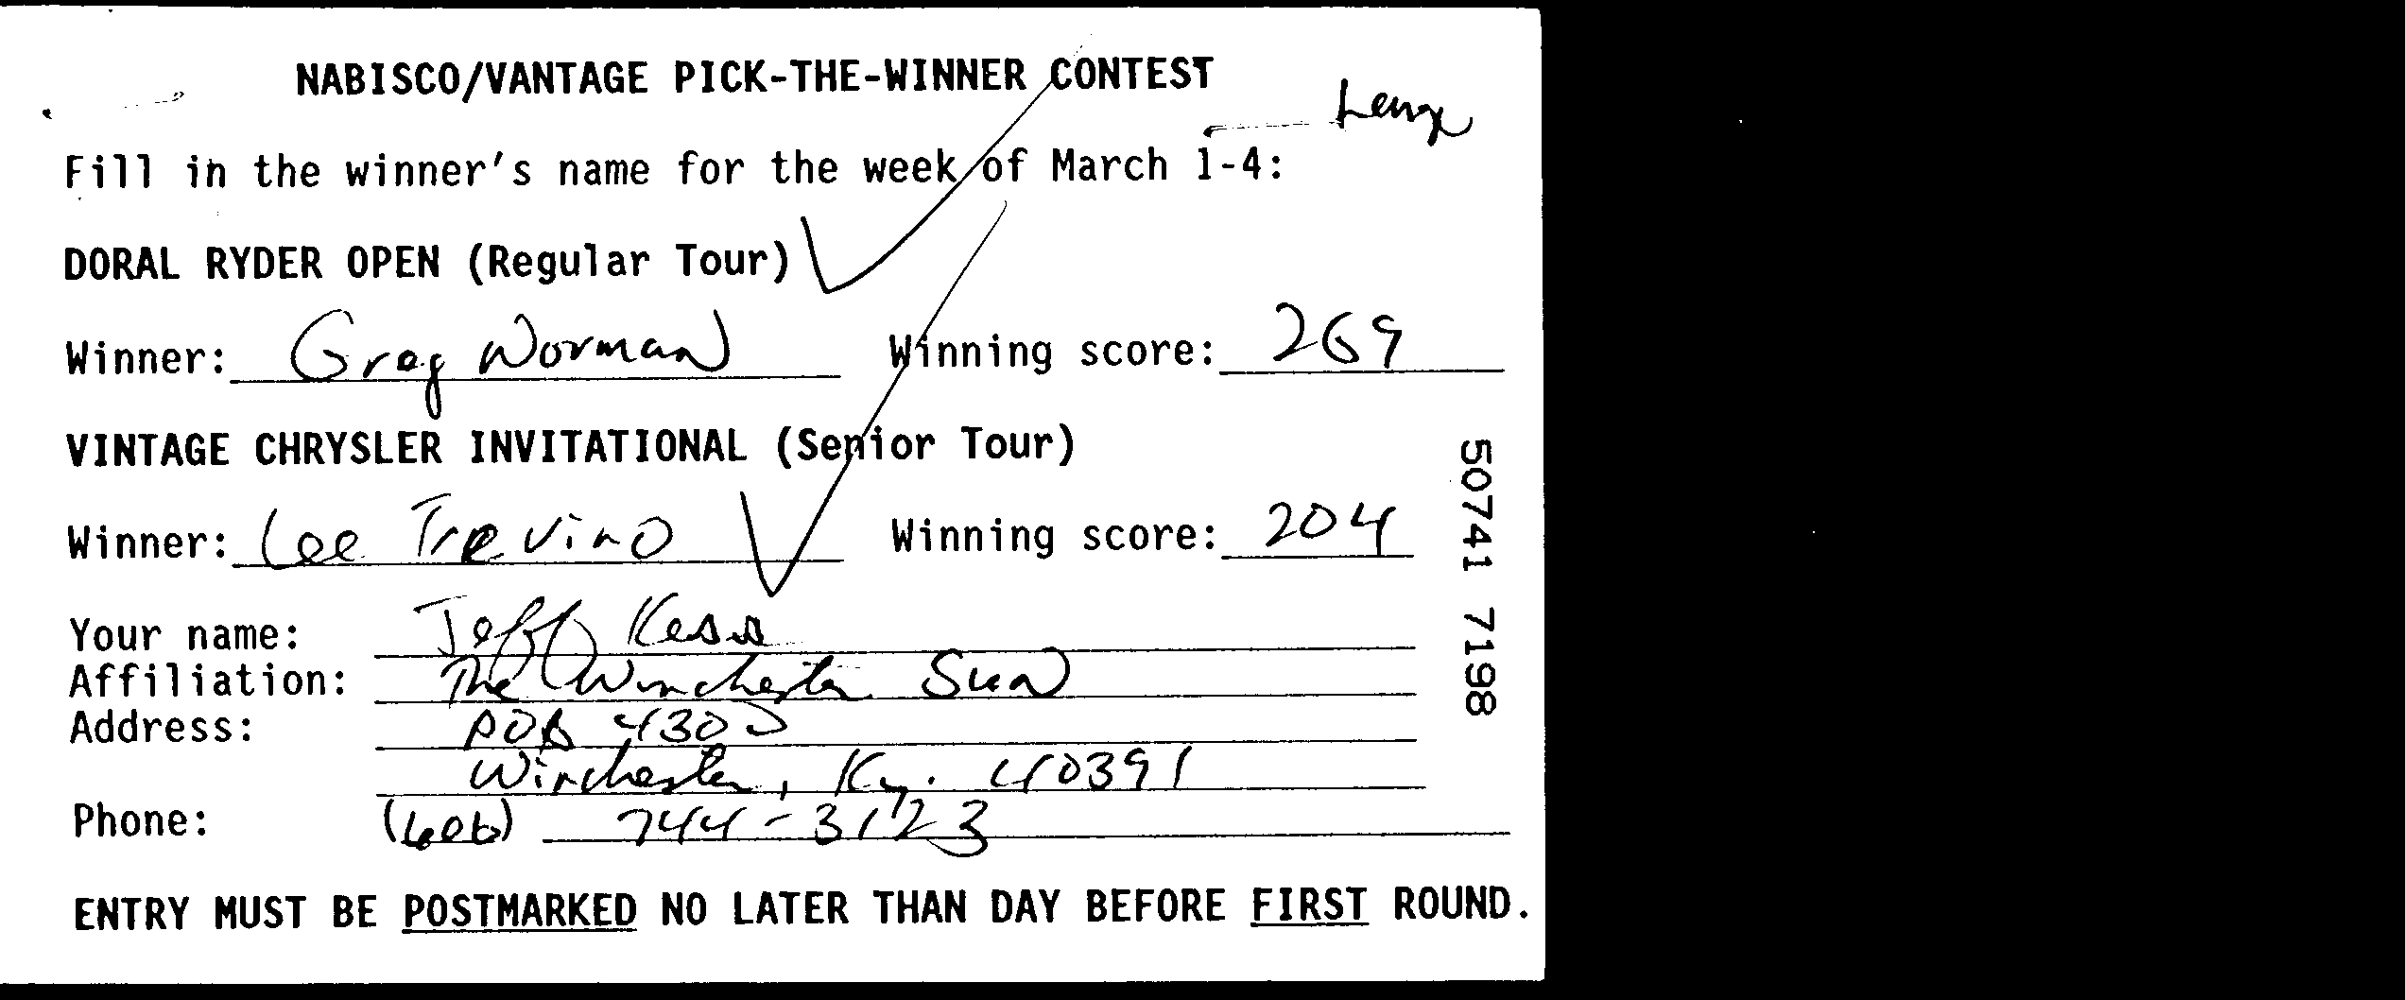 NABISCO/VANTAGE PICK-THE-WINNER CONTEST
Fill in the winner's name for the week of March 1-4:
DORAL RYDER OPEN (Regular Tour)
Winner: Greg Norman Winning score: 269
VINTAGE CHRYSLER INVITATIONAL (Senior Tour)
Winner: Lee Trevino Winning score: 204
Your name: Jeff Kess
Affiliation: The Winchester Sun
Address: POB 4300
Winchester, Ky. 40391
Phone: (606) 744-3123
ENTRY MUST BE POSTMARKED NO LATER THAN DAY BEFORE FIRST ROUND.
50741 7198